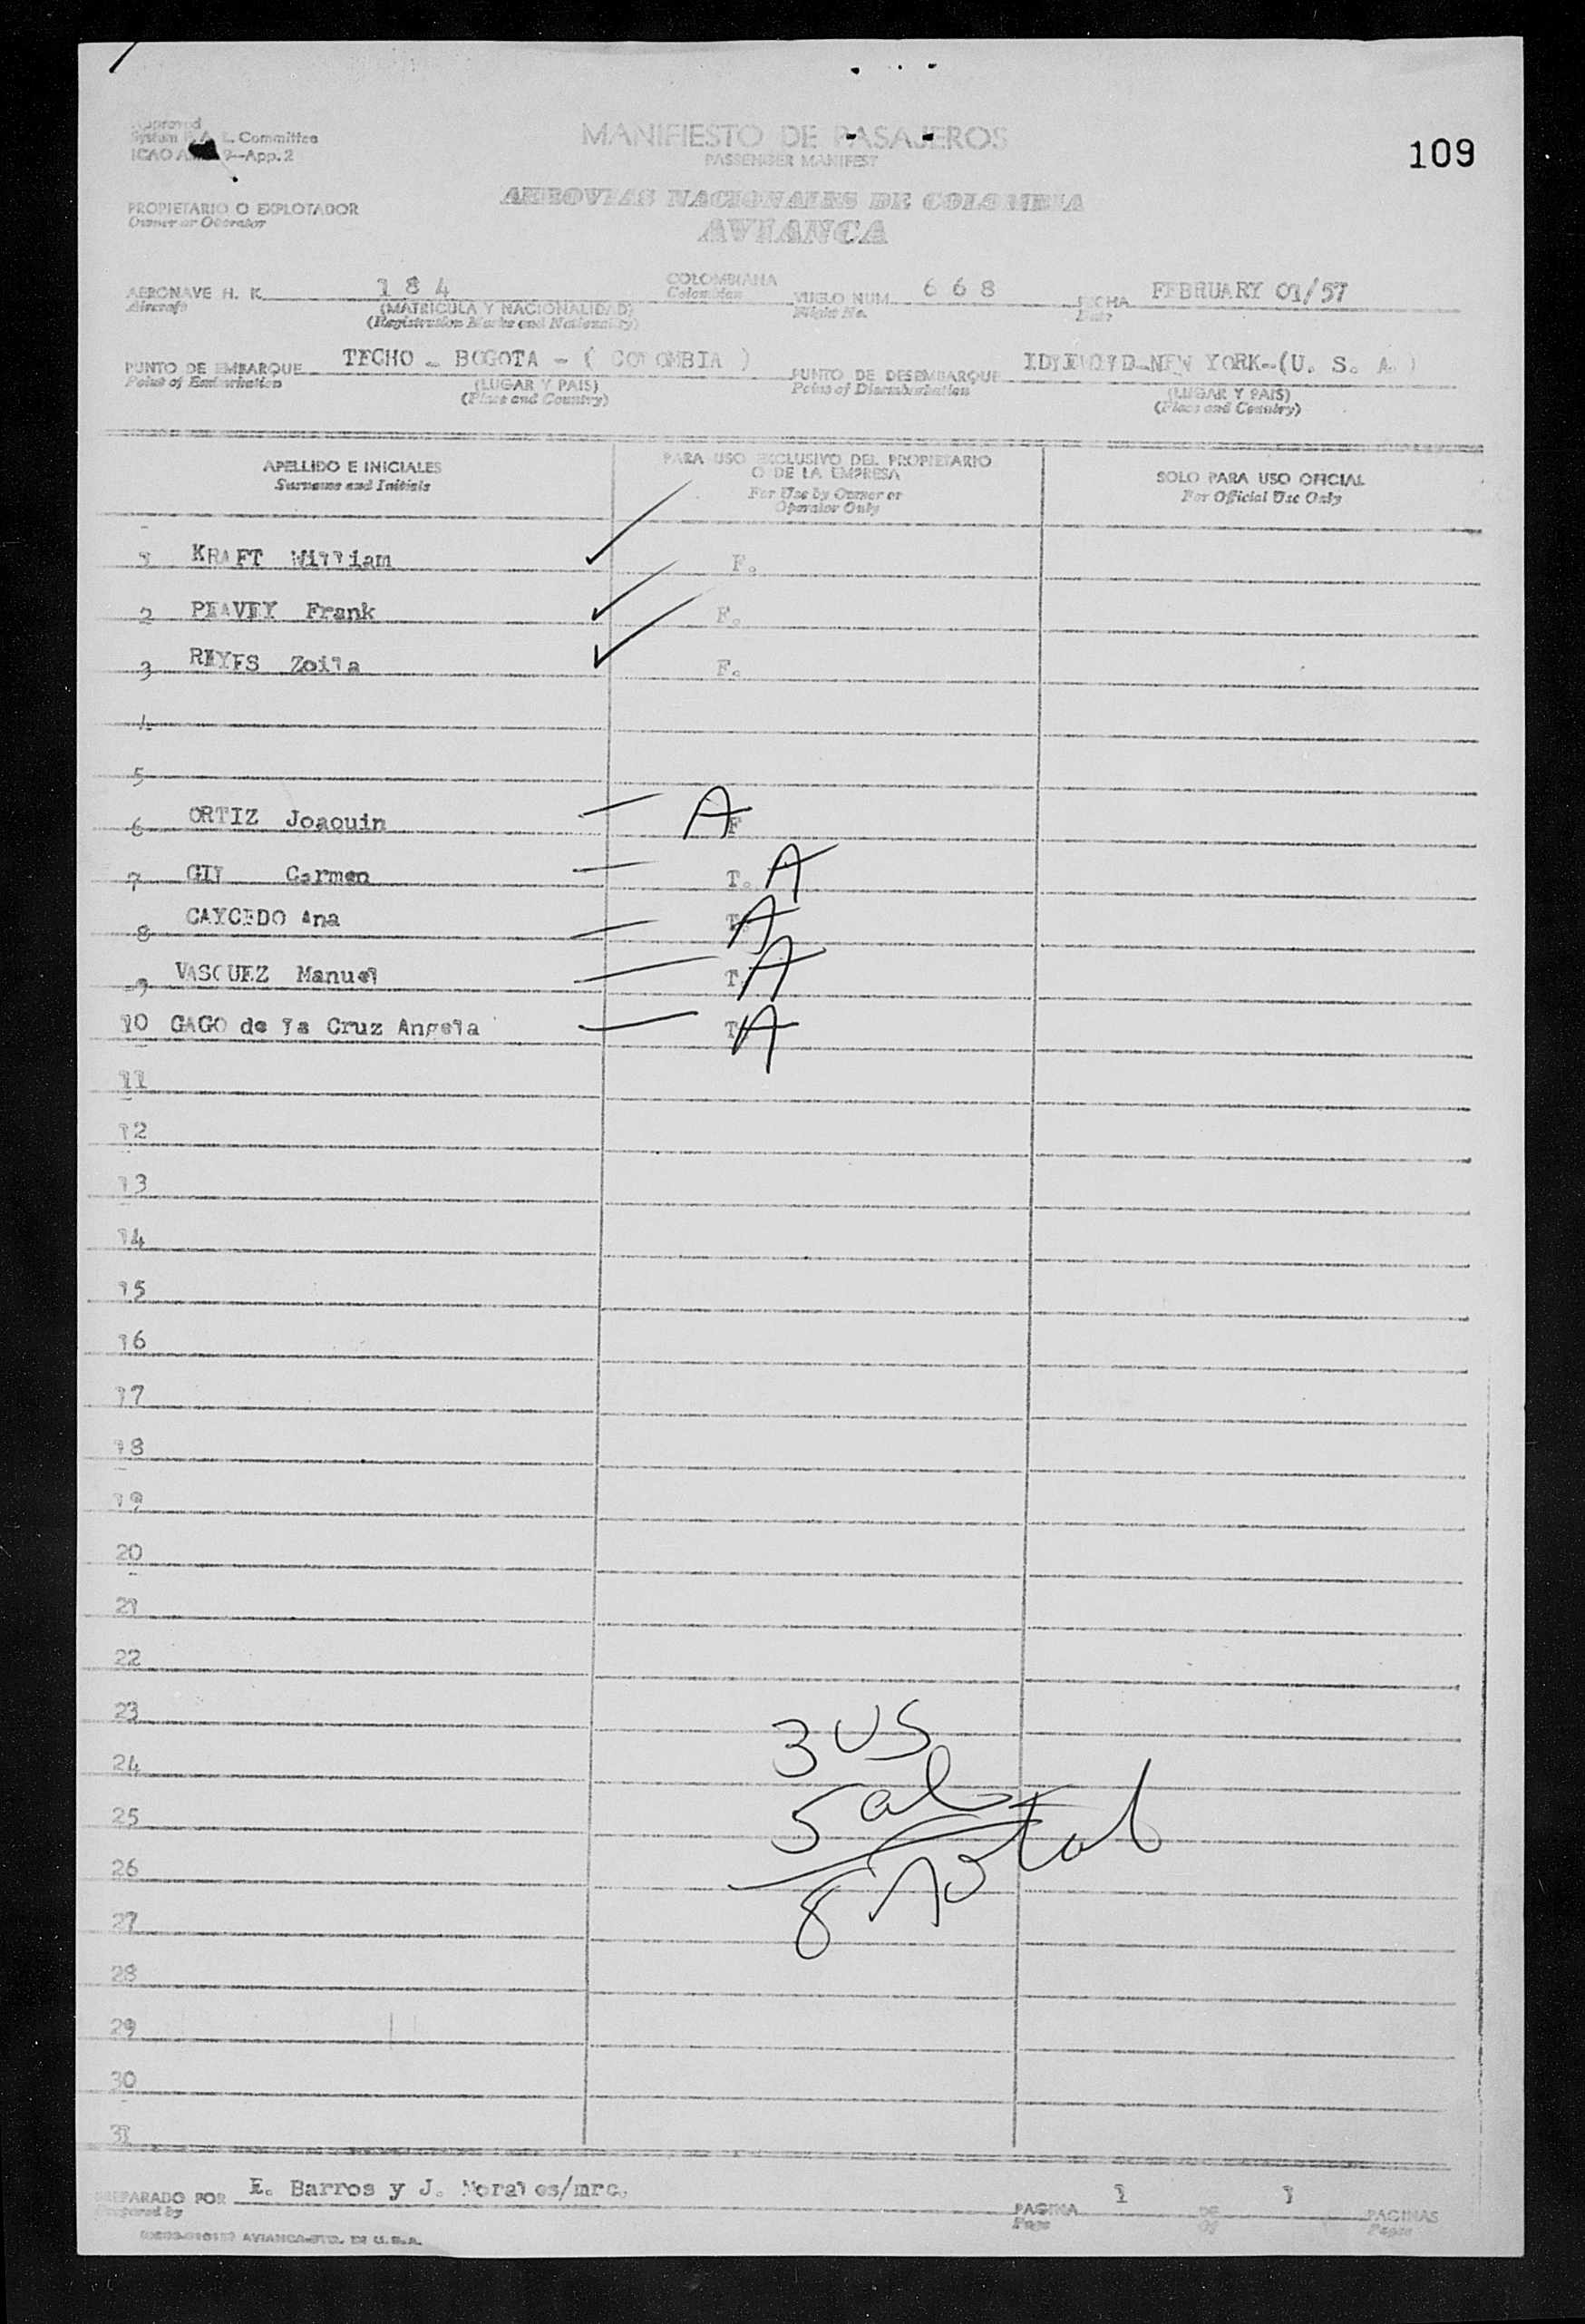 109
Approved
System F. A. L. Committee
ICAO 9—App. 2
MANIFIESTO DE PASAJEROS
PASSENGER MANIFEST
PROPIETARIO O EXPLOTADOR
Owner or Operator
AEROVIAS NACIONALES DE COLOMBIA
AVIANCA
AERONAVE H. K. 184 COLOMBIANA VUELO NUM. 668 FECHA FEBRUARY 01/57
Aircraft (MATRICULA Y NACIONALIDAD) Colombian Flight No. Date
(Registration Marks and Nationality)
PUNTO DE EMBARQUE TECHO - BOGOTA - ( COLOMBIA ) PUNTO DE DESEMBARQUE IDLEWILD-NEW YORK-(U. S. A.)
Point of Embarkation (LUGAR Y PAIS) Point of Disembarkation (LUGAR Y PAIS)
(Place and Country) (Place and Country)
APELLIDO E INICIALES PARA USO EXCLUSIVO DEL PROPIETARIO SOLO PARA USO OFICIAL
Surname and Initials O DE LA EMPRESA For Official Use Only
For Use by Owner or
Operator Only
1 KRAFT William F.
2 PEAVEY Frank F.
3 REYES Zoila F.
4
5
6 ORTIZ Joaquin A F
7 GIL Carmen T. A
8 CAYCEDO Ana T. A
9 VASQUEZ Manuel T. A
10 GAGO de la Cruz Angela T. A
11
12
13
14
15
16
17
18
19
20
21
22
23 3 US
24
25 5 al
26 8 Total
27
28
29
30
31
PREPARADO POR E. Barros y J. Morales/mrc. PAGINA 1 DE 1 PAGINAS
Prepared by Page Of Pages
AVIANCA-STD. IN U.S.A.